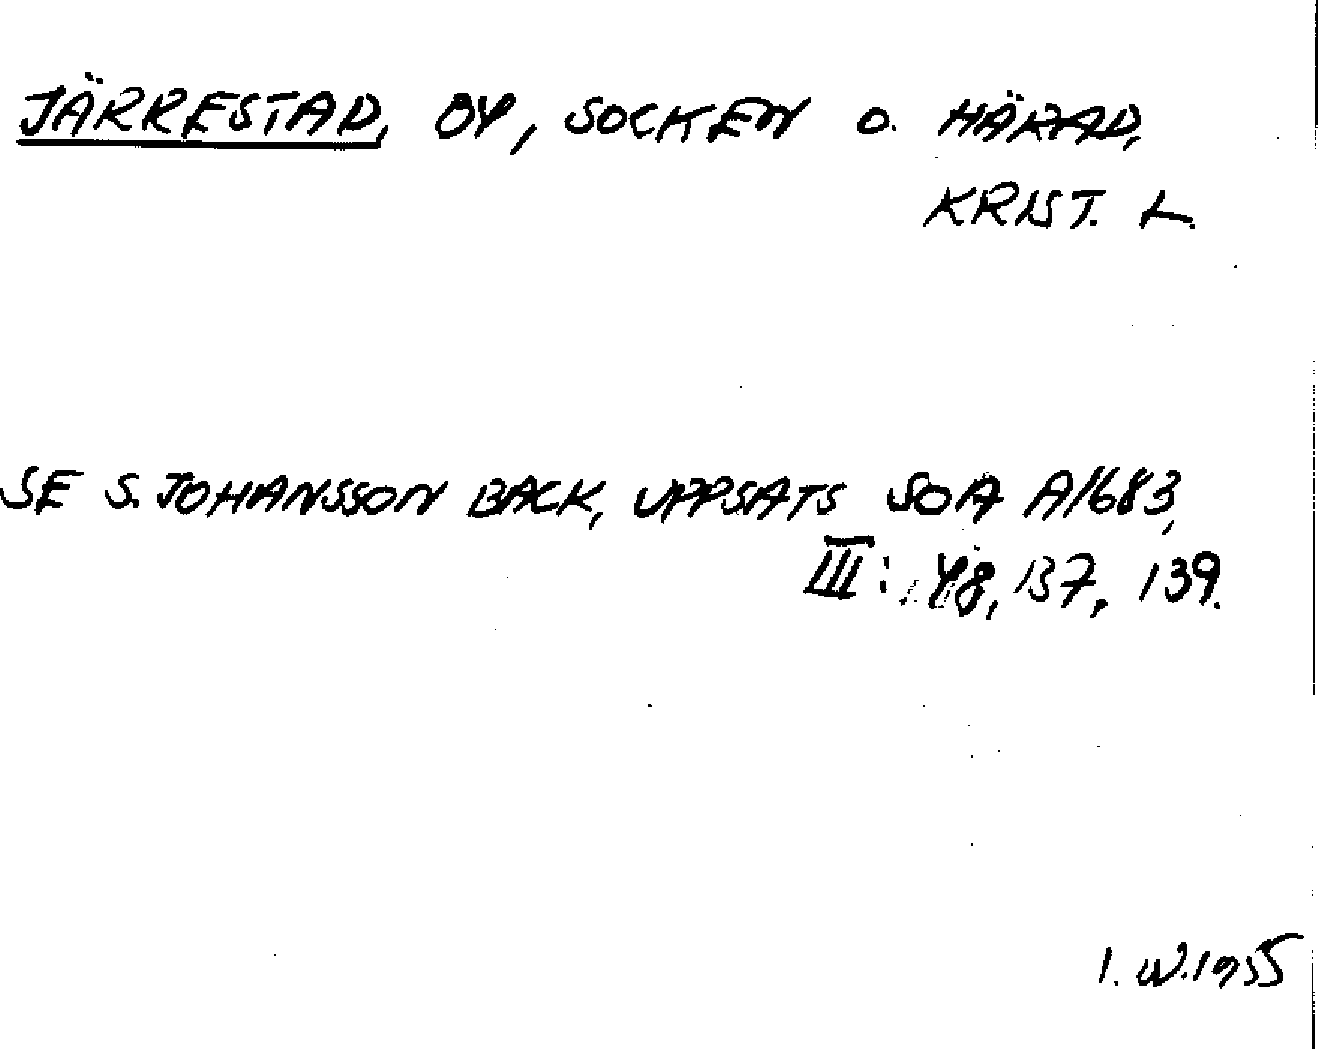 JÄRRESTAD, BY, SOCKEN O. HÄRAD,
KRIST. L.
SE S. JOHANSSON BACK, UPPSATS SOA A1683,
III: 48, 137, 139.
I. W. 1955